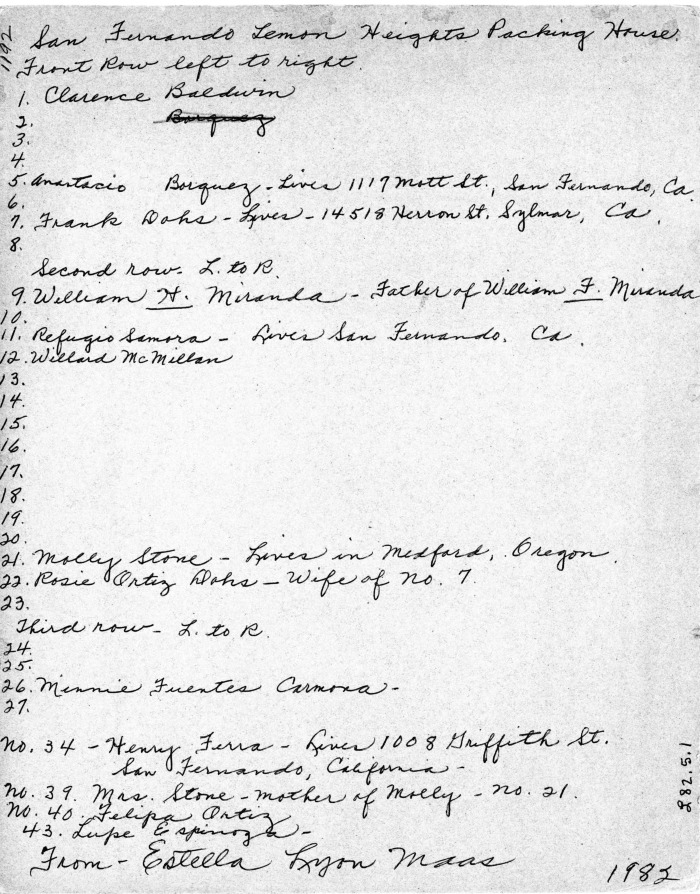 1192
San Fernando Lemon Heights Packing House.
Front Row left to right.
1. Clarence Baldwin
2. Borquez
3.
4.
5. Anastacio Borquez - Lives 1117 Mott St., San Fernando, Ca.
6.
7. Frank Dohs - Lives - 14518 Herron St. Sylmar, Ca.
8.
Second row - L. to R.
9. William H. Miranda - Father of William F. Miranda
10.
11. Refugio Samora - Lives San Fernando, Ca.
12. Willard McMillan
13.
14.
15.
16.
17.
18.
19.
20.
21. Molly Stone - Lives in Medford, Oregon.
22. Rosie Ortiz Dohs - Wife of No. 7
23.
Third row - L. to R.
24.
25.
26. Minnie Fuentes Carmona -
27.
No. 34 - Henry Ferra - Lives 1008 Griffith St.
San Fernando, California -
No. 39. Mrs. Stone - mother of Molly - No. 21.
No. 40. Felipa Ortiz
43. Lupe Espinoza -
From - Estella Lyon Maas
1982
P82.5.1